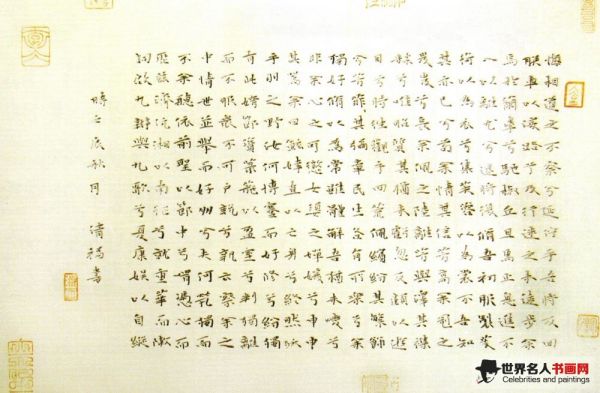 悔相道之不察兮延佇乎吾將反回
朕車以復路兮及行迷之未遠步余
馬於蘭皋兮馳椒丘且焉止息進不
入以離尤兮退將復脩吾初服製芰
荷以為衣兮集芙蓉以為裳不吾知
其亦已兮苟余情其信芳高余冠之
岌岌兮長余佩之陸離芳與澤其雜
糅兮唯昭質其猶未虧忽反顧以遊
目兮將往觀乎四荒佩繽紛其繁飾
兮芳菲菲其彌章民生各有所樂兮余
獨好脩以為常雖體解吾猶未變兮
豈余心之可懲女嬃之嬋媛兮申申
其詈予曰鯀婞直以亡身兮終然殀
乎羽之野汝何博謇而好脩兮紛獨
有此姱節薋菉葹以盈室兮判獨離
而不服眾不可戶說兮孰云察余之
中情世並舉而好朋兮夫何煢獨而
不余聽依前聖以節中兮喟憑心而
歷茲濟沅湘以南征兮就重華而敶
詞啟九辯與九歌兮夏康娛以自縱
時 秋月 書
世界名人书画网
Celebrities and paintings